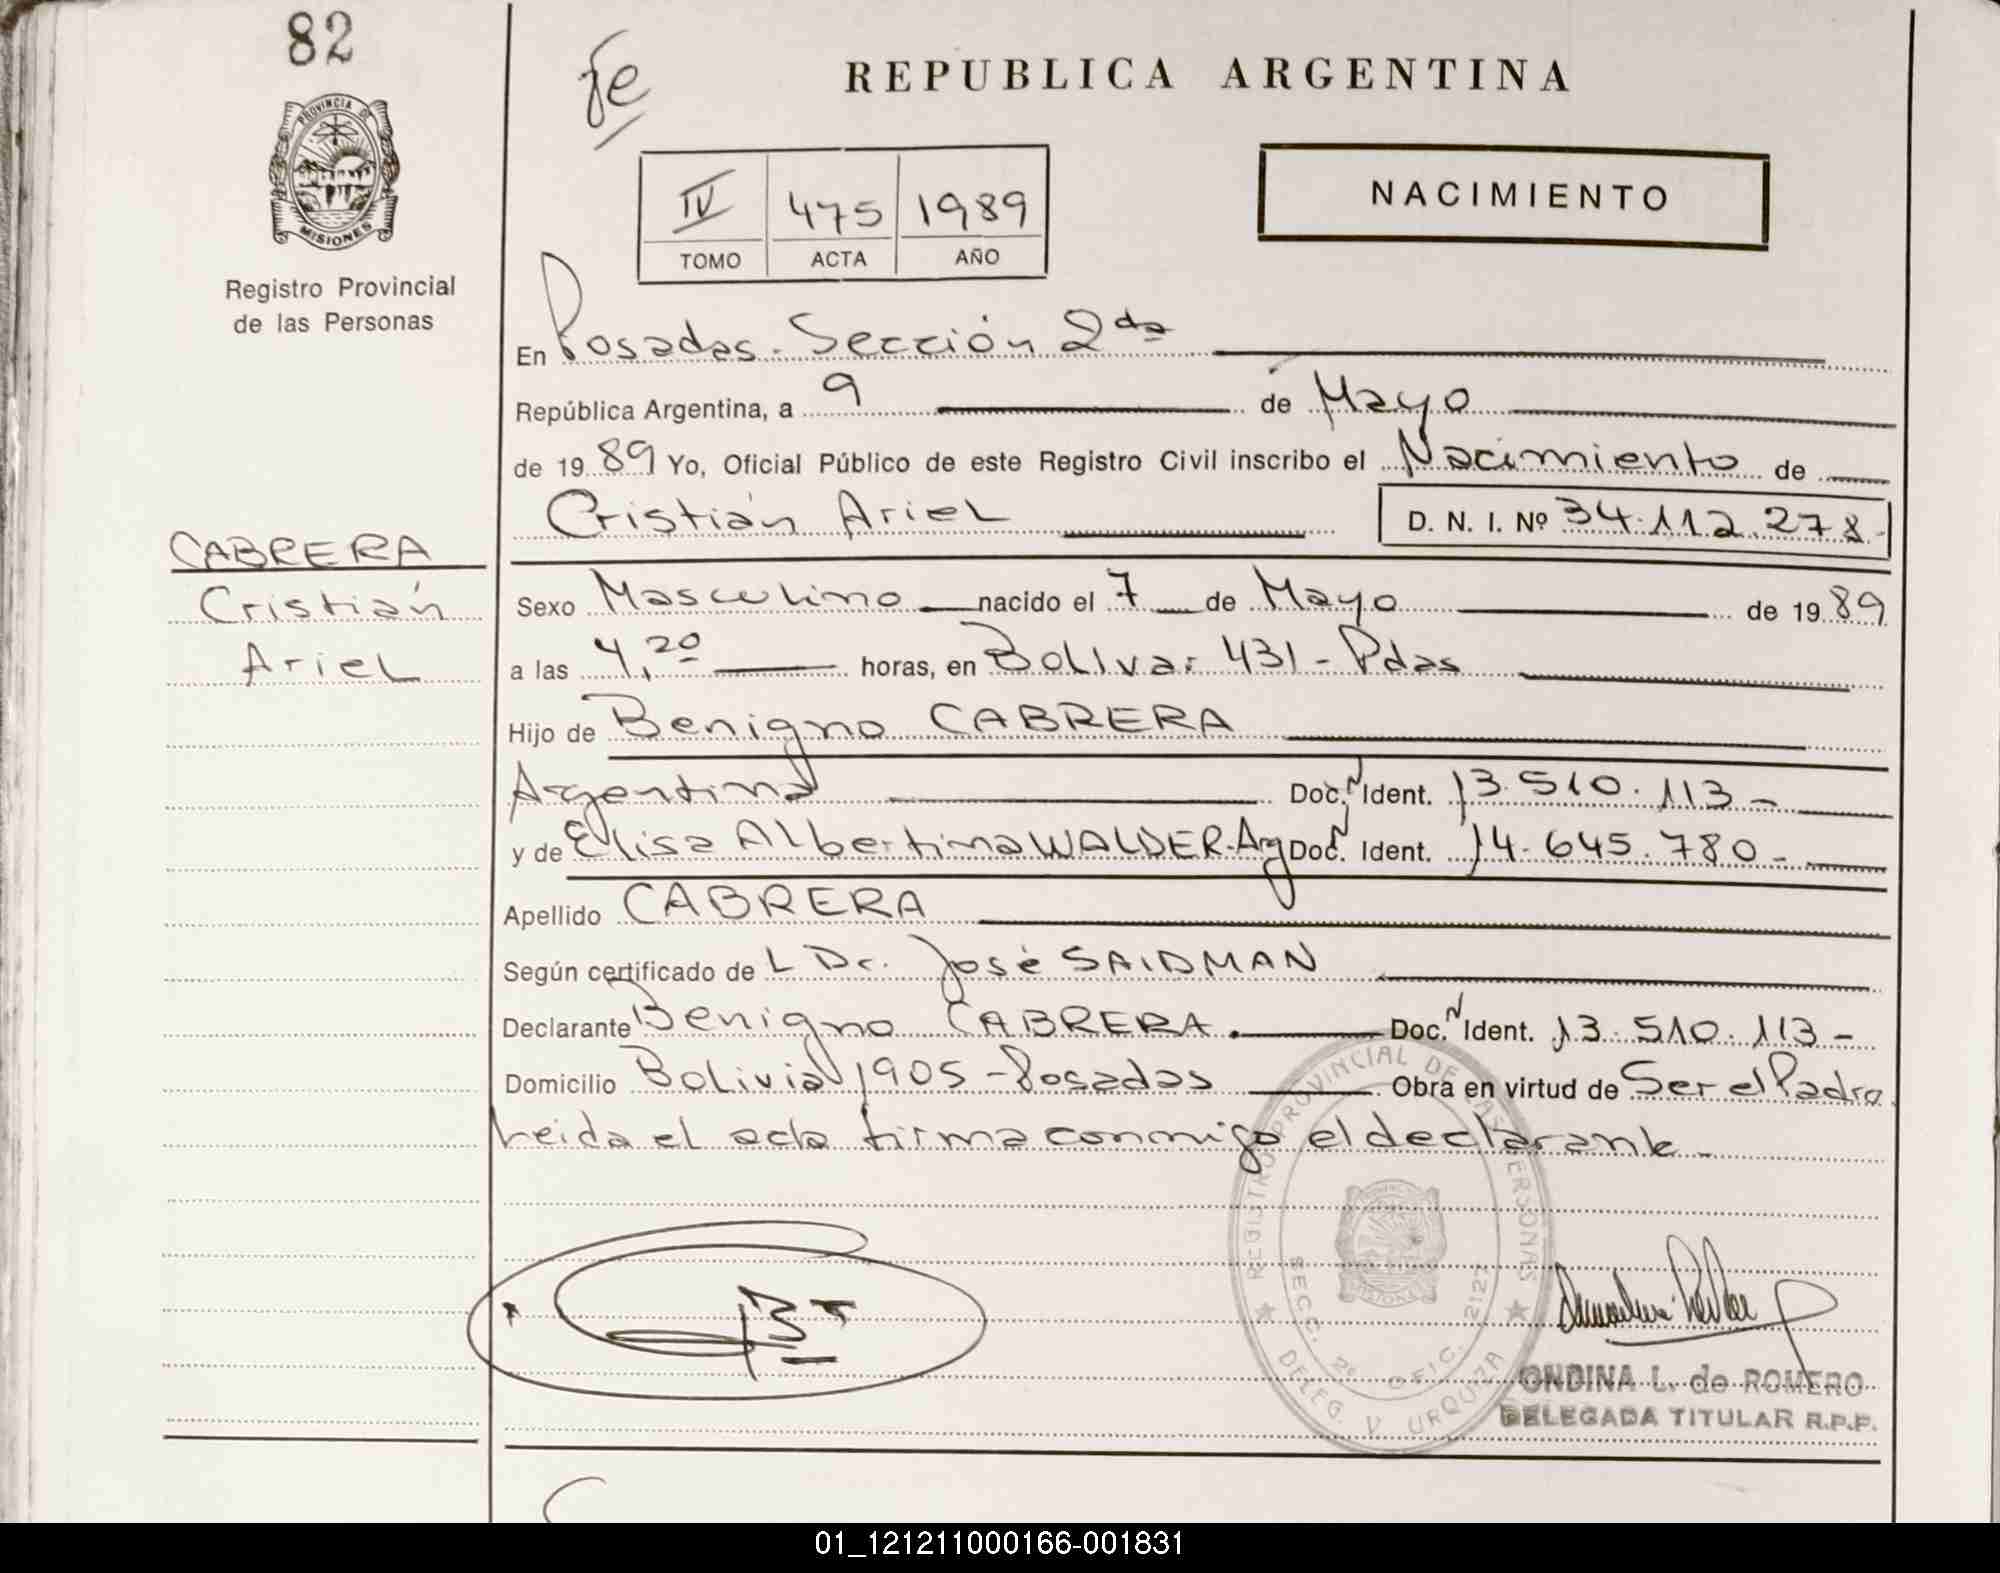 82
PROVINCIA DE
MISIONES
Registro Provincial
de las Personas
fe
REPUBLICA ARGENTINA
IV 475 1989
TOMO ACTA AÑO
NACIMIENTO
En Posadas. Sección 2da
República Argentina, a 9 de Mayo
de 1989 Yo, Oficial Público de este Registro Civil inscribo el Nacimiento de
Cristián Ariel D. N. I. Nº 34.112.278-
CABRERA
Cristián
Ariel
Sexo Masculino nacido el 7 de Mayo de 1989
a las 4,20 horas, en Bolivar 431 - Pdas
Hijo de Benigno CABRERA
Argentina Doc. N Ident. 13.510.113-
y de Elisa Albertina WALDER. Arg Doc. N Ident. 14.645.780-
Apellido CABRERA
Según certificado de L Dr. José SAIDMAN
Declarante Benigno CABRERA. Doc. N Ident. 13.510.113-
Domicilio Bolivia 1905 - Posadas Obra en virtud de Ser el Padre.
Leida el acta firma conmigo el declarante -
REGISTRO PROVINCIAL DE LAS PERSONAS
SECC. 2º OFIC. 2127
DELEG. V. URQUIZA
MISIONES
ONDINA L. de ROMERO
DELEGADA TITULAR R.P.P.
01_121211000166-001831